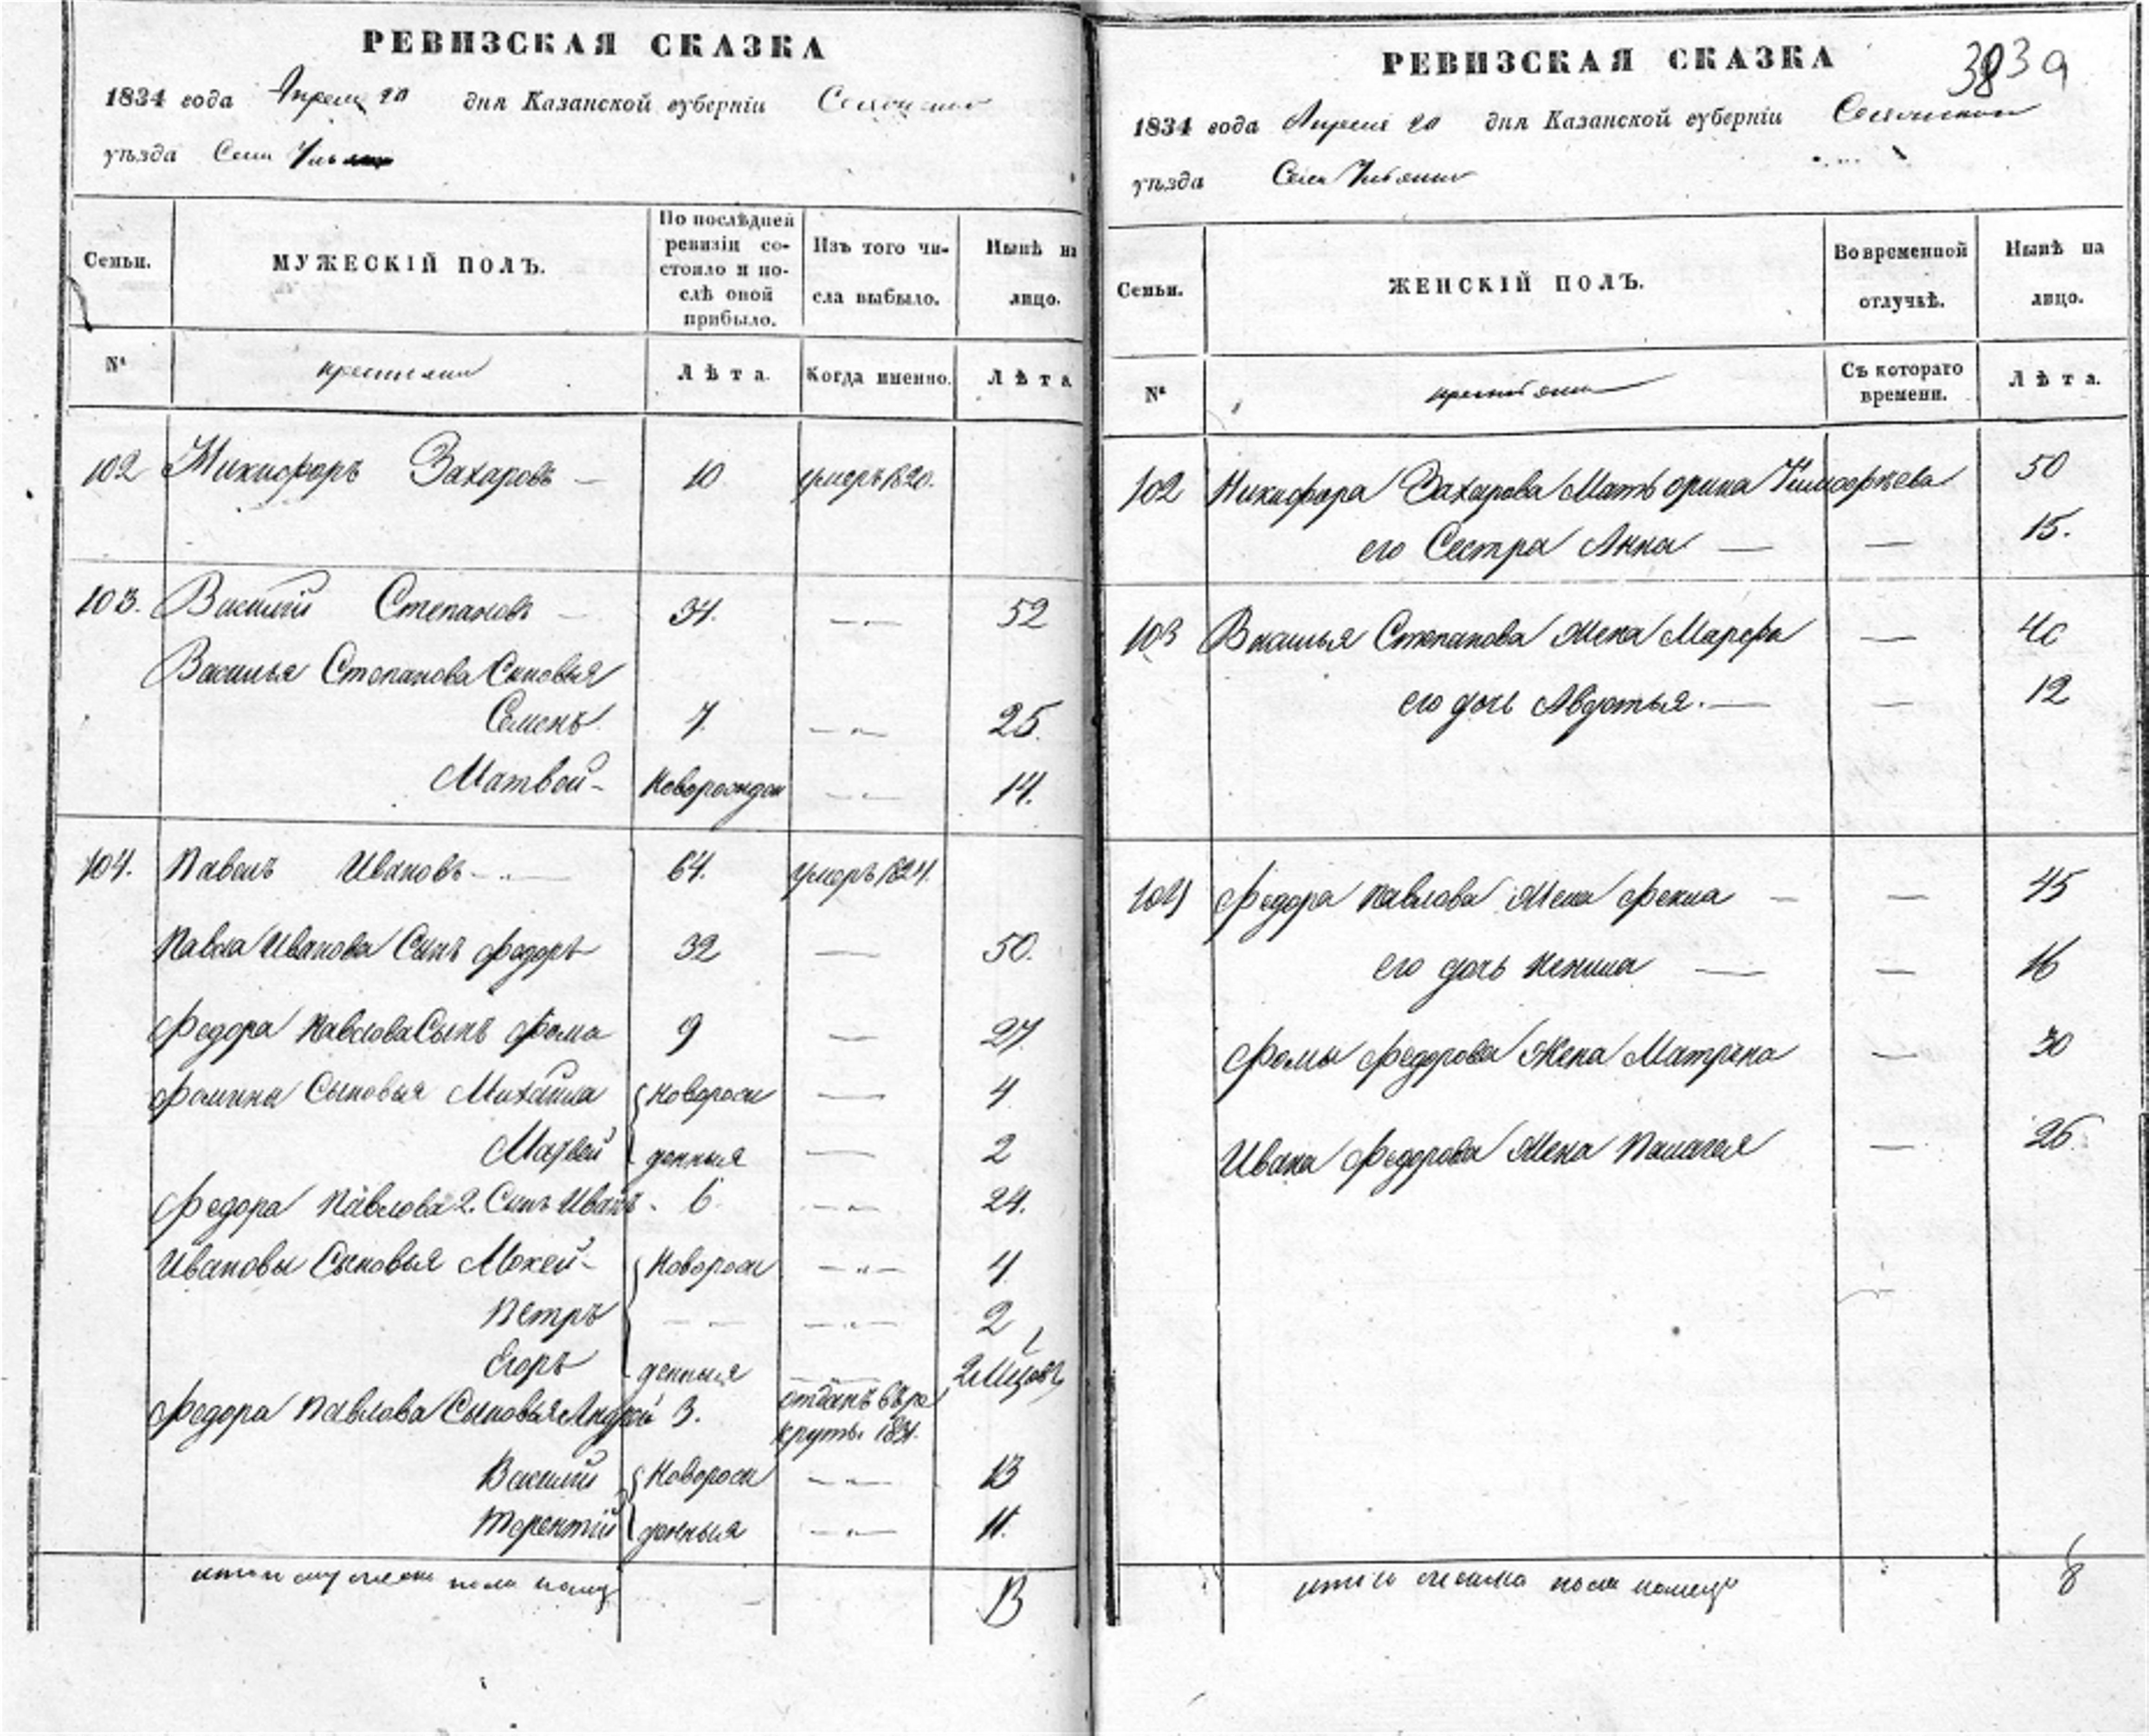 РЕВИЗСКАЯ СКАЗКА
1834 года Апреля 20 дня Казанской губерніи
уѣзда Села
Семьи. МУЖЕСКІЙ ПОЛЪ. По послѣдней ревизіи состояло и послѣ оной прибыло. Изъ того числа выбыло. Нынѣ на лицо.
№ крестьяни Лѣта. Когда именно. Лѣта
102 Никифоръ Захаровъ — 10 умеръ 1820.
103. Василий Степановъ — 34. —„— 52
Василья Степанова Сыновья
Семенъ 7. —„— 25.
Матвей - Новорожден —„— 14.
104. Павелъ Ивановъ - „ — 64. умеръ 1824.
Павла Иванова Сынъ Федоръ 32 — 50.
Федора Павлова Сынъ Фома 9 — 27
Фомины Сыновья Михайла { Новорож — 4
Матвей денныя — 2
Федора Павлова 2. Сынъ Иванъ. 6. —„— 24.
Ивановы Сыновья Мокей - { Новорож —„— 4
Петръ — — —„— 2
Егоръ денныя —„— 2 Мцовъ
Федора Павлова Сыновья Андрей 3. отданъ въ ре
круты 1831.
Василий { Новорож —„— 13
Терентий денныя —„— 11.
итого мужеска пола налицо 13
РЕВИЗСКАЯ СКАЗКА 39
1834 года Апреля 20 дня Казанской губерніи
уѣзда Села
Семьи. ЖЕНСКІЙ ПОЛЪ. Во временной отлучкѣ. Нынѣ на лицо.
№ крестьяни Съ котораго времени. Лѣта.
102 Никифора Захарова Мать орина Тимофѣева 50
его Сестра Анна — — 15.
103 Василья Степанова Жена Марфа — 40
его дочь Авдотья. — — 12
104 Федора Павлова Жена Фекла — — 45
его дочь — — 16
Фомы Федорова Жена Матрена — 30
Ивана Федорова Жена Палагея — 26.
итого женска пола налицо 8